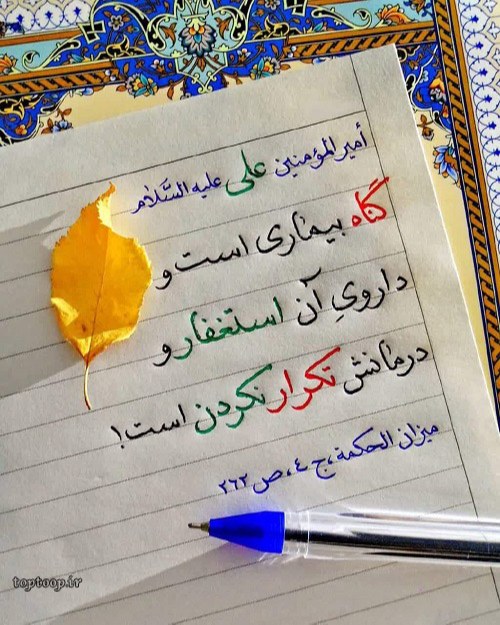 أمیرالمؤمنین علی علیه السَّلام
گناه بیماری است و
دارویِ آن استغفار و
درمانش تکرار نکردن است!
میزان الحکمة، ج ٤، ص ٢٦٢
toptoop.ir